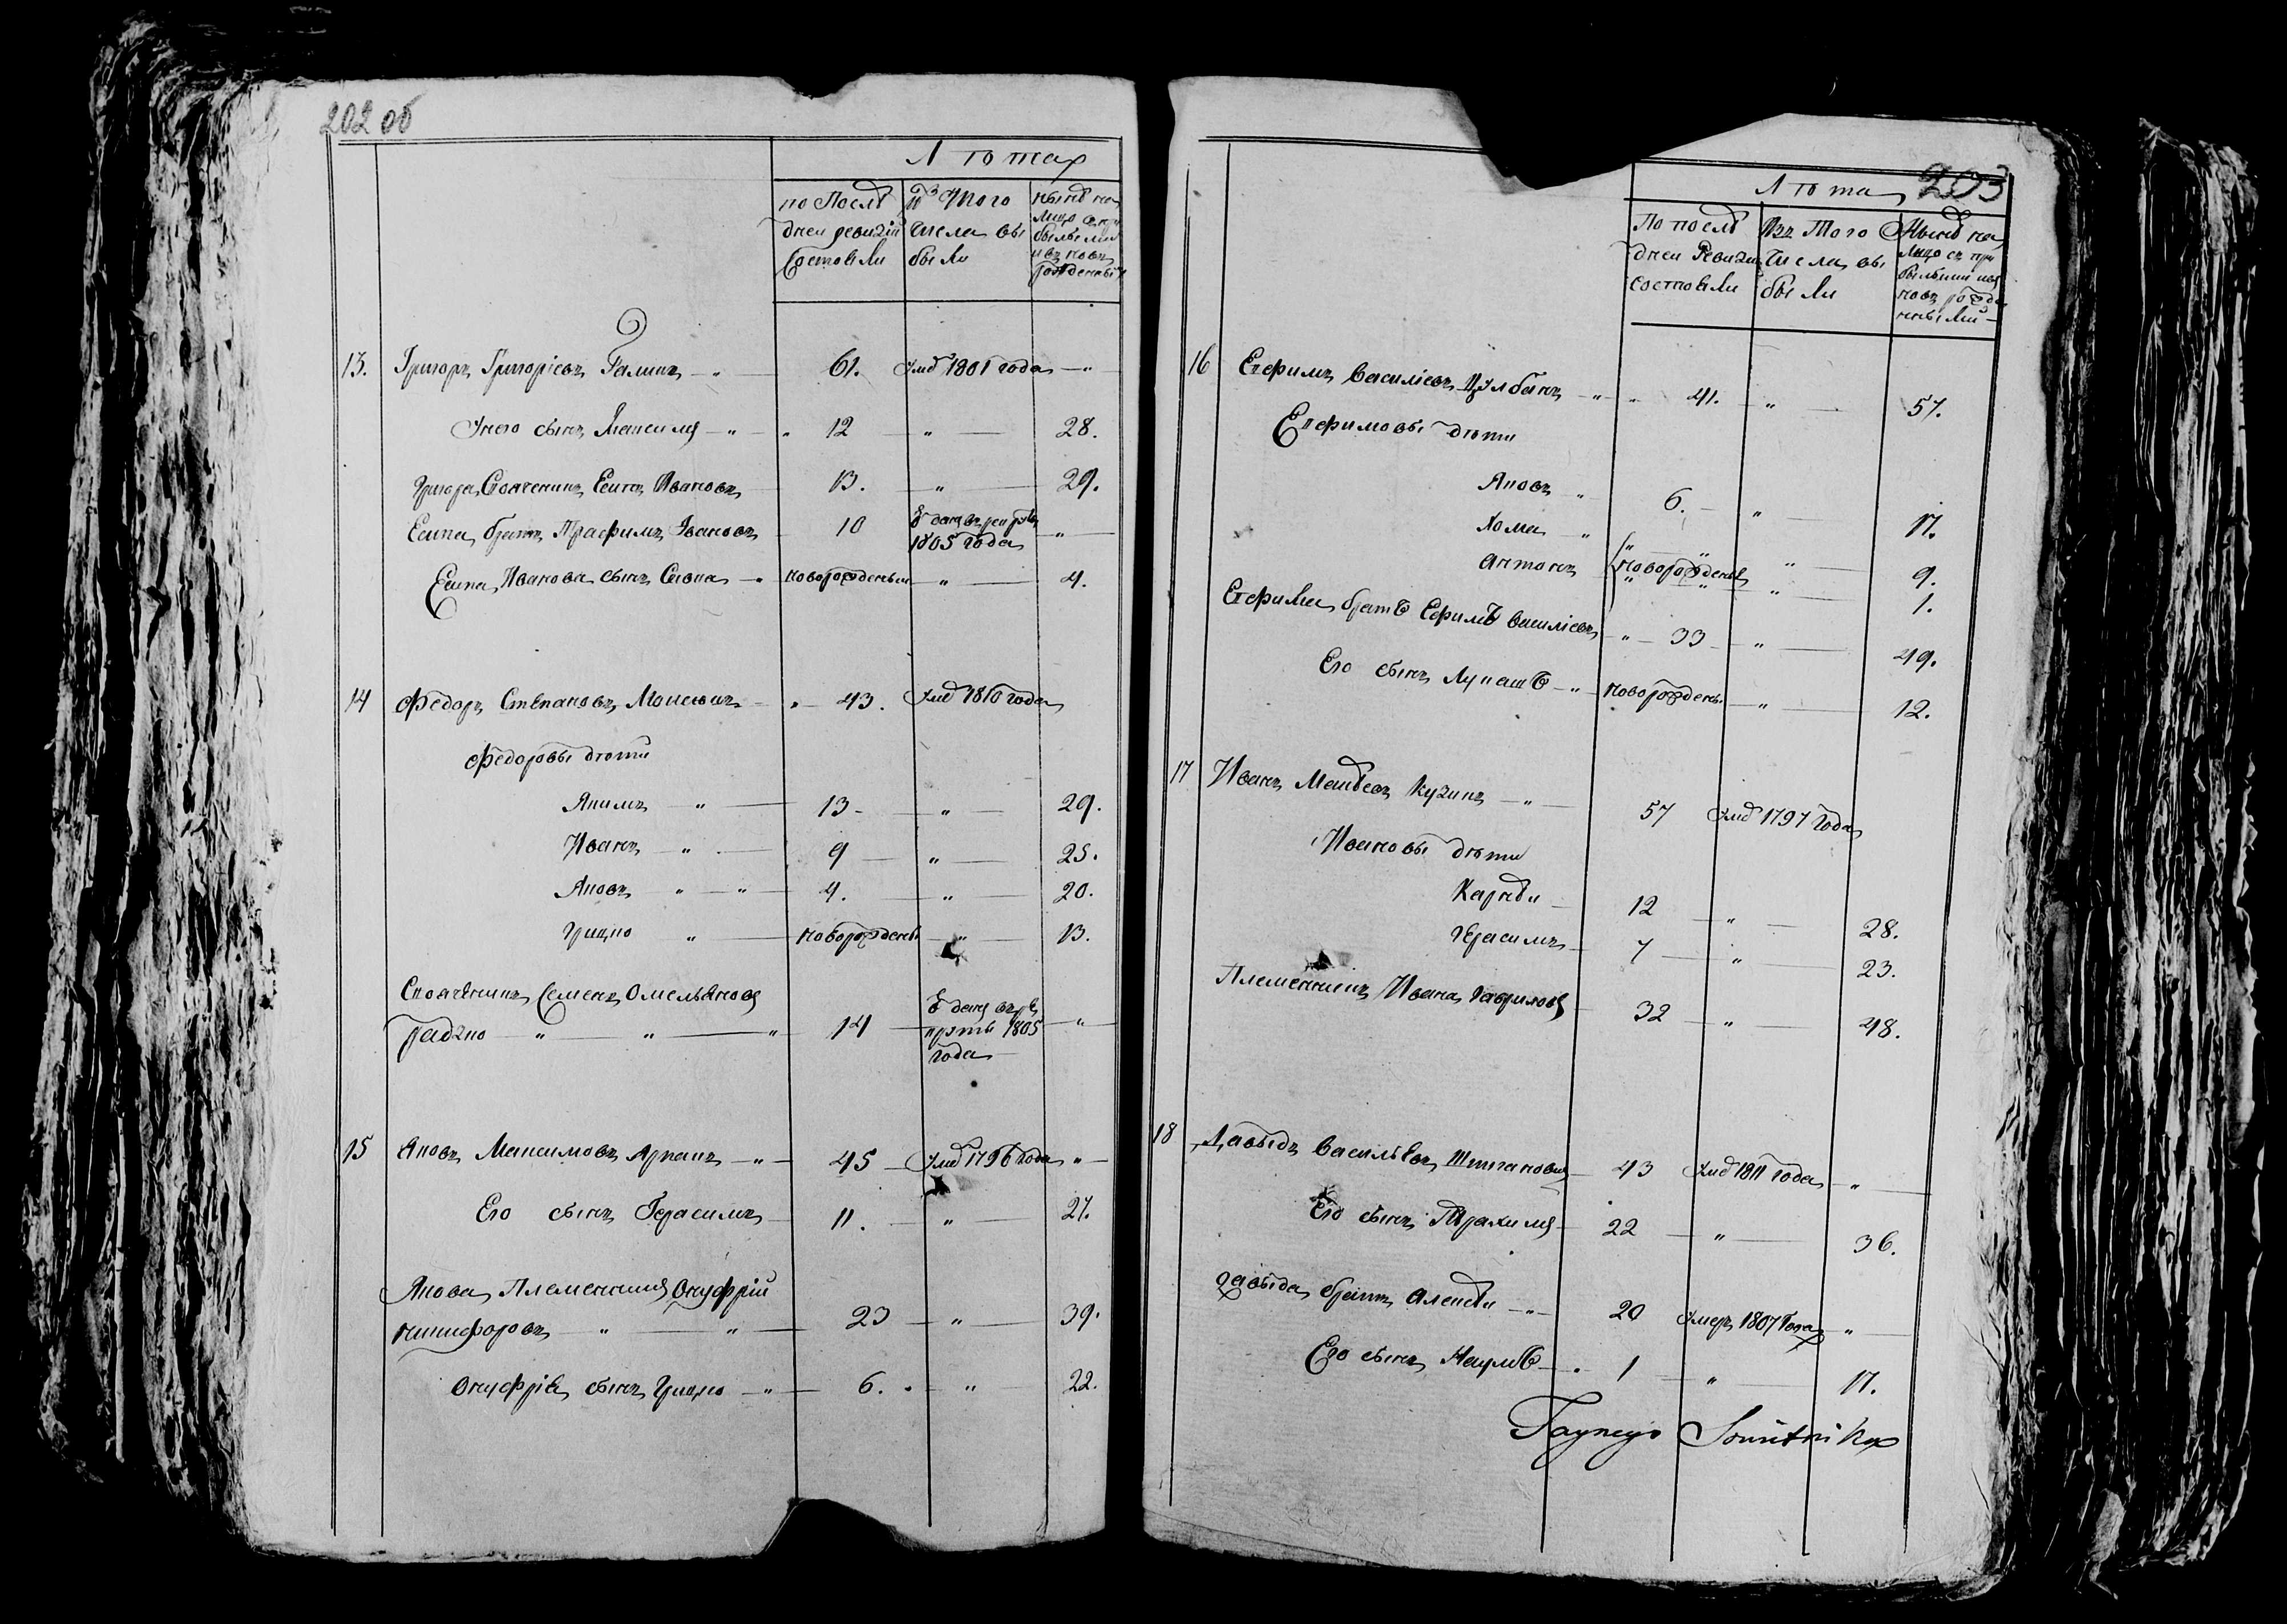 202 об
Лѣтах
по Послѣ
дней ревизіи
Состояли
Из Того
Числа вы
были
нынѣ на
Лицо с при
былыми
и вновь
рожденны
13. Григоръ Григоріевъ Галикъ 61. Умѣ 1801 года
Унего сынъ Максимъ 12 28.
Григора, Своячениць Есипъ Ивановъ 13. 29.
Есипа, братъ Трофимъ Ивановъ 10 Ѿданъ врекруты
1805 года
Есипа, Иванова сынъ Савка новорожденны 4.
14 Федоръ Степановъ Моисѣнко 43. Умѣ 1810 года
Федоровы дѣти
Якимъ 13 29.
Иванъ 9 25.
Яковъ 4. 20.
Грицко новорожденны 13.
Своячениць Семенъ Омельяновъ
Радзко 14 Ѿданъ врѣ
круты 1805
года
15 Яковъ Максимовъ Яркачъ 45 Умѣ 1796 года
Его сынъ Герасимъ 11. 27.
Якова, Племенникъ Онуфрій
Никифоровъ 23 39.
Онуфрія, сынъ Грицко 6. 22.
203
Лѣта
По послѣ
дней Ревизіи
состояли
Изъ Того
Числа, вы
были
Нынѣ на
Лицо съ при
былыми и в
новъ рожде
нными
16 Ефимъ Василіевъ Цимбалъ 41. 57.
Ефимовы дѣти
Яковъ 6. 17.
Хома 9.
Антонъ новорожденны 1.
Ефима, братъ Ефимъ Василіевъ 33 49.
Его сынъ Лукашъ новорожденны 12.
17 Иванъ Матвѣевъ Кузикъ 57 Умѣ 1797 года
Ивановы дѣти
Карнѣй 12 28.
Герасимъ 7 23.
Племенникъ Ивана, Гавриловъ 32 48.
18 Давыдъ Васильевъ Шинкановъ 43 Умѣ 1811 года
Его сынъ Трохимъ 22 36.
Давыда, братъ Алексѣй 20 Умеръ 1807 Года
Его сынъ Наумъ 1 17.